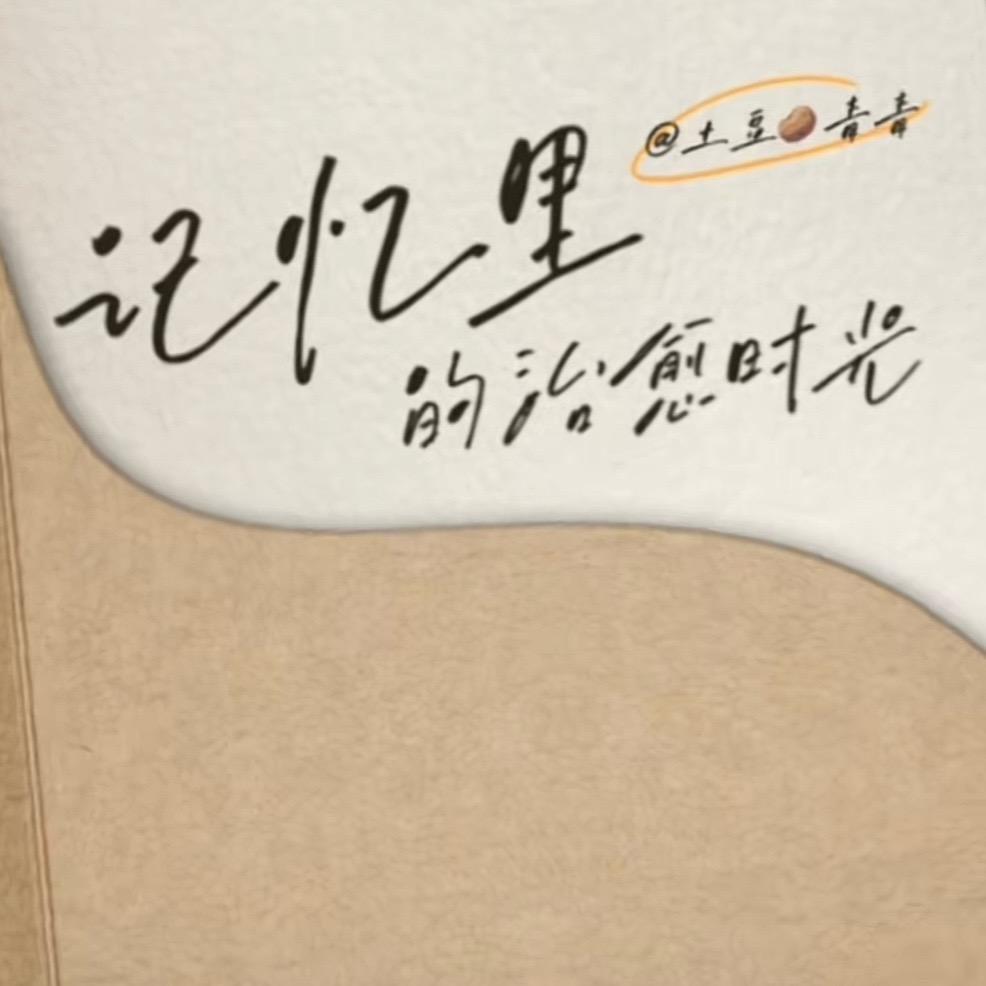 @土豆🥔青青
记忆里
的治愈时光